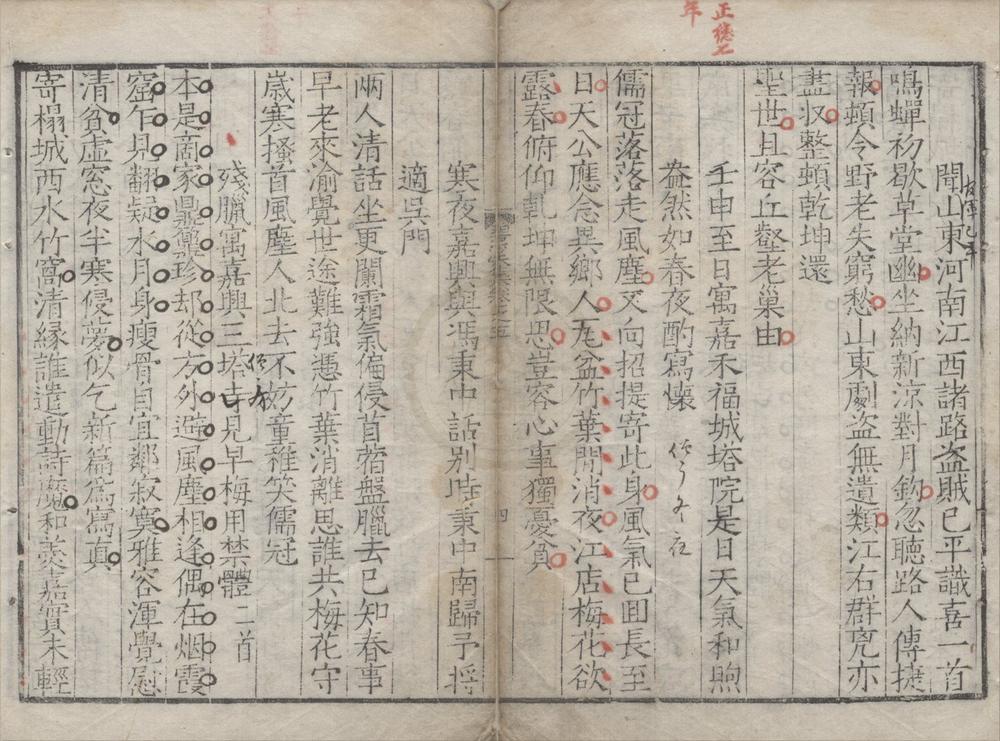 正德七年
聞山東河南江西諸路盜賊已平識喜一首
鳴蟬初歇草堂幽坐納新涼對月鉤忽聽路人傳捷
報頓令野老失窮愁山東劇盜無遺類江右群兇亦
盡収整頓乾坤還
聖世且容丘壑老巢由
壬申至日寓嘉禾福城塔院是日天氣和煦
盎然如春夜酌寫懷
儒冠落落走風塵又向招提寄此身風氣已囬長至
日天公應念異鄉人瓦盆竹葉開消夜江店梅花欲
露春俯仰乹坤無限恐豈容心事獨憂貧
四
寒夜嘉興與馮秉中話別時秉中南歸予將
適吳門
兩人清話坐更闌霜氣偏侵苜蓿盤臘去已知春事
早老來渝覺世途難強憑竹葉消離思誰共梅花守
歲寒搔首風塵人北去不妨童稚笑儒冠
殘臘寓嘉興三塔寺見早梅用禁體二首
本是商家鼎鼐珍却從方外避風塵相逢偶在烟霞
窟乍見翻疑水月身瘦骨自宜鄰寂寞雅容渾覺慰
清貧虛窓夜半寒侵夢似乞新篇為寫真
寄榻城西水竹窩清緣誰遣動詩魔和羹嘉實未輕